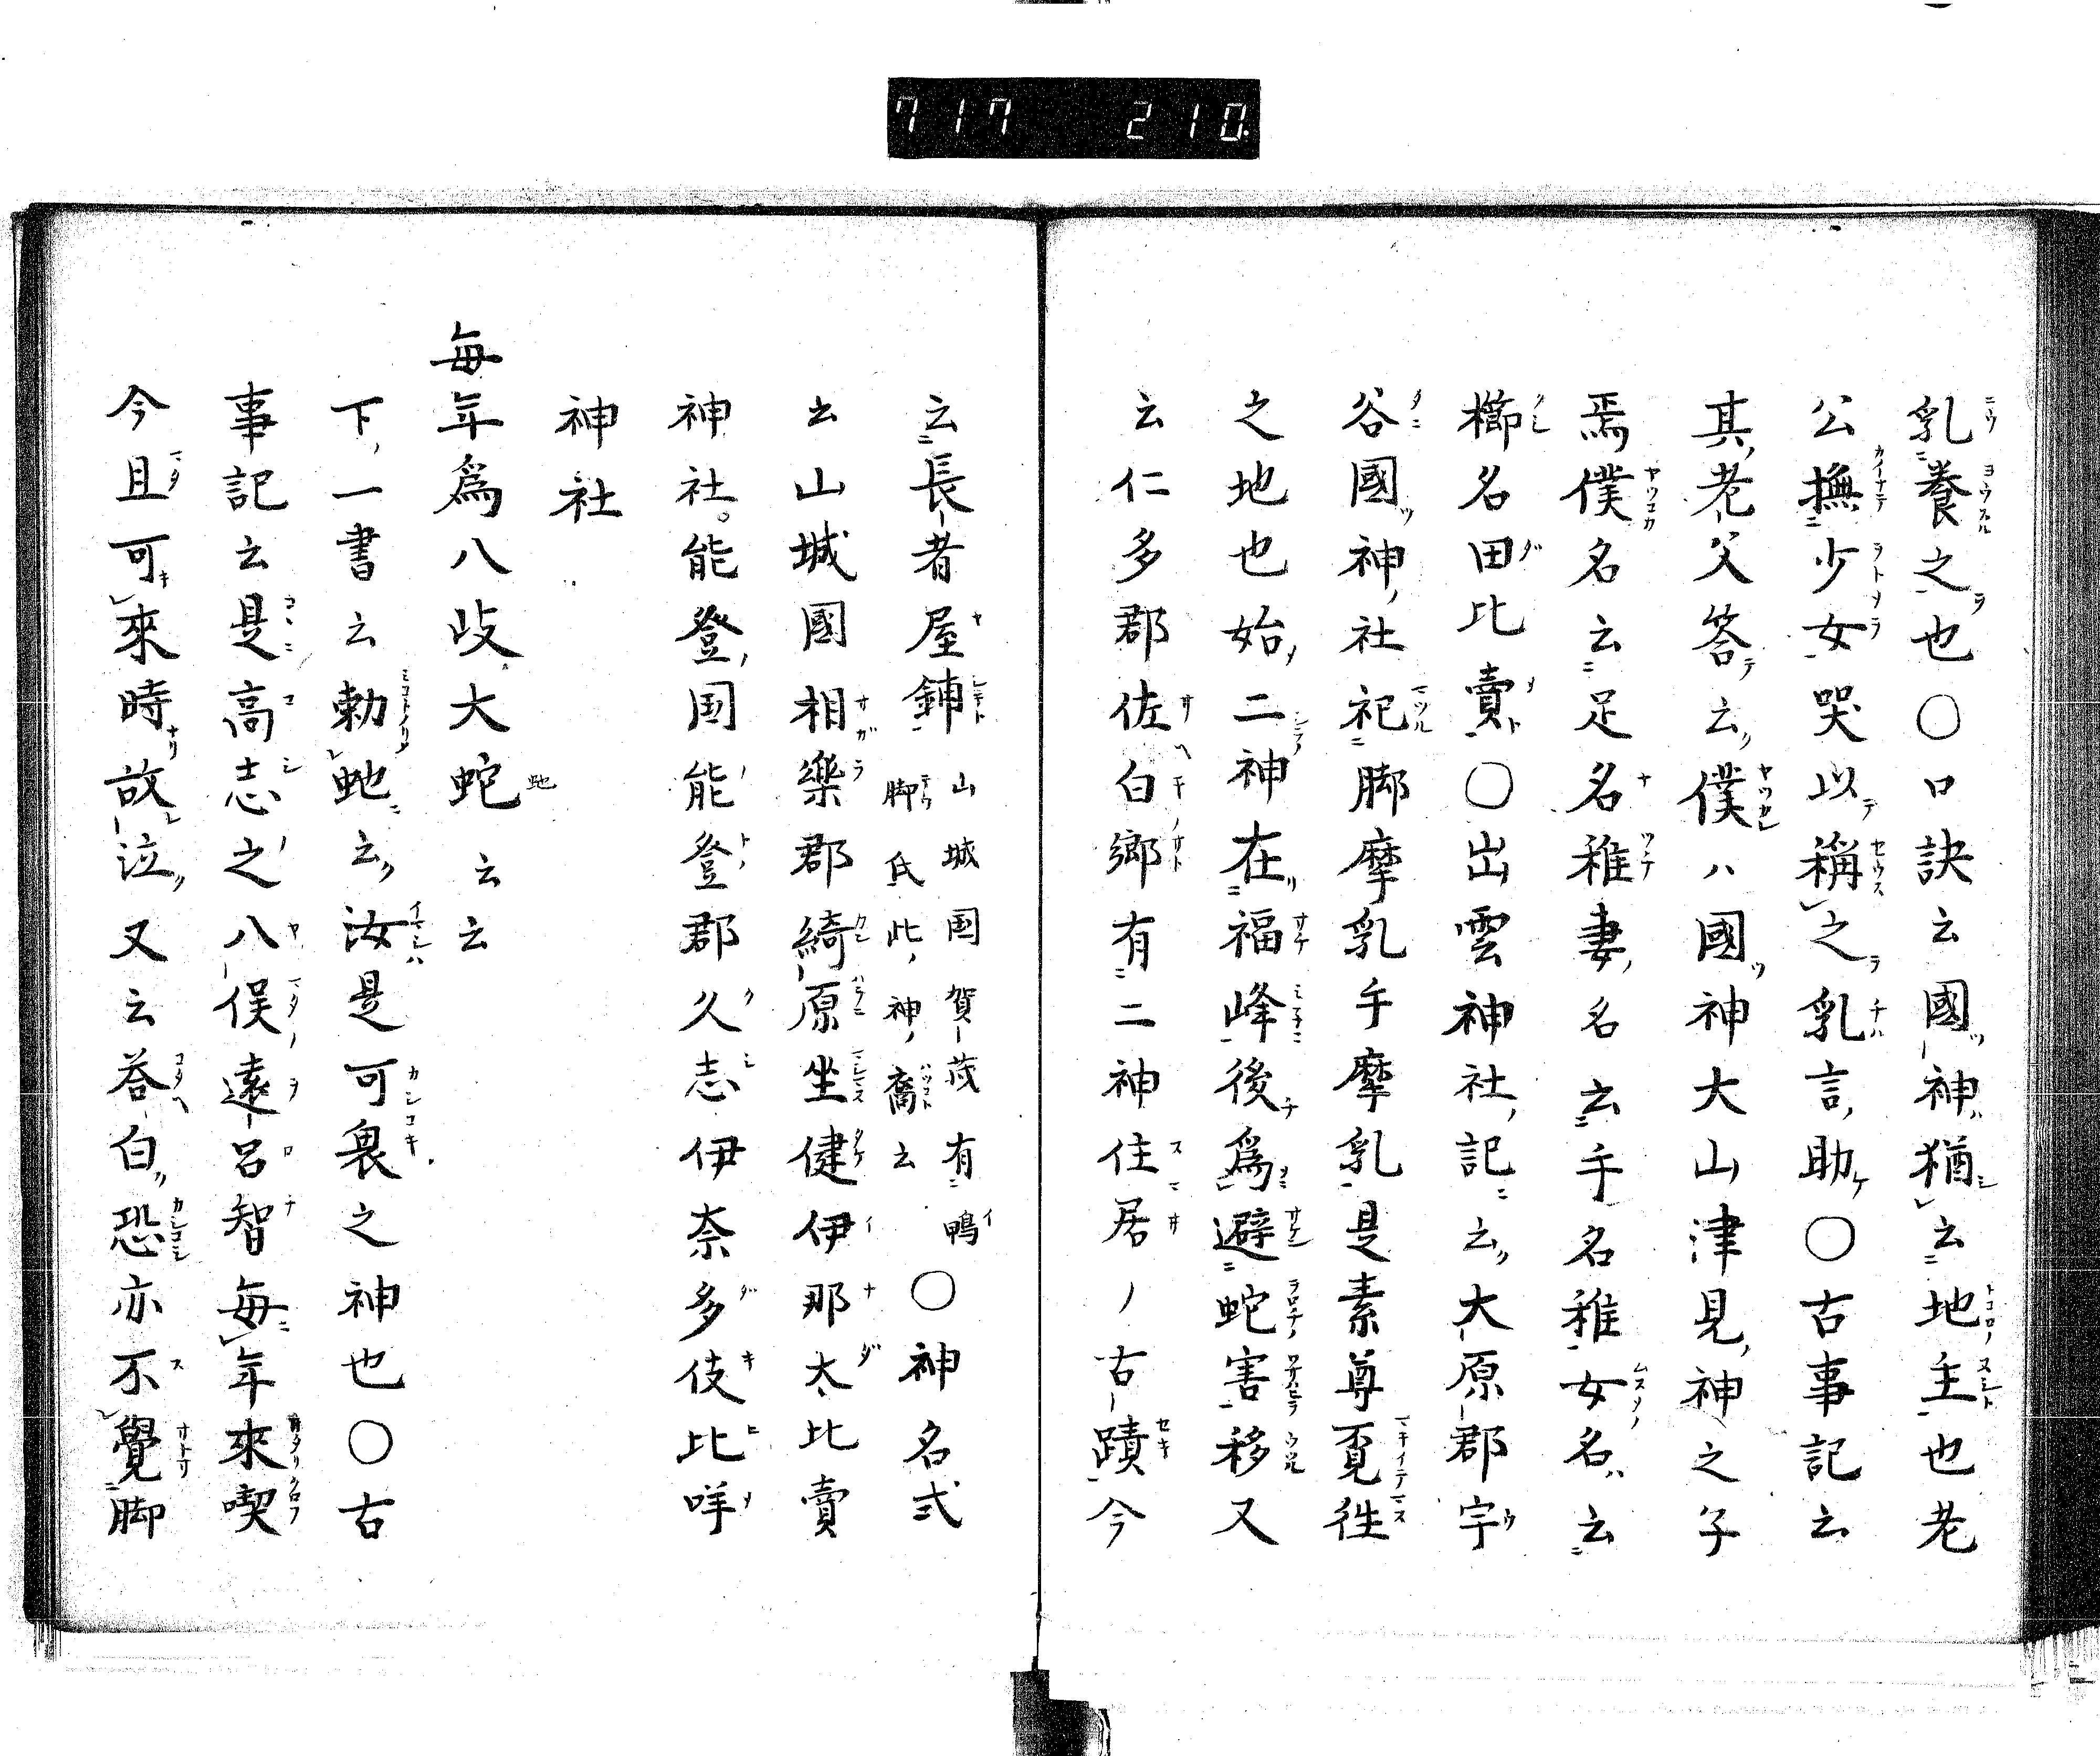 717 210
乳養之也〇口訣云國神猶云地主也老
公撫少女哭以稱之乳言助〇古事記云
其老父答云僕ハ國神大山津見神之子
焉僕名云足名稚妻名云手名稚女名云
櫛名田比賣〇出雲神社記云大原郡宇
谷國神社祀脚摩乳手摩乳是素尊覓徃
之地也始二神在福峰後爲避蛇害移又
云仁多郡佐白郷有二神住居ノ古蹟今
云長者屋鋪 山城国賀茂有鴨脚氏此神裔云 〇神名式
云山城國相樂郡綺原坐健伊那太比賣
神社。能登国能登郡久志伊奈多伎比咩
神社
毎年爲八岐大蛇 云云
下一書云勅虵云汝是可畏之神也〇古
事記云是高志之八俣遠呂智毎年來喫
今且可來時故泣又云荅白恐亦不覺脚